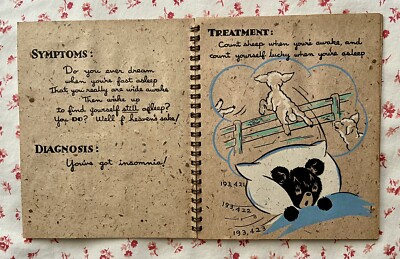 SYMPTOMS:
Do you ever dream
when you're fast asleep
That you really are wide awake
Then wake up
to find yourself still asleep?
You DO? Well f' heaven's sake!
DIAGNOSIS:
You've got insomnia!
TREATMENT:
Count sheep when you're awake, and
count yourself lucky when you're asleep
193,421
193,422
193,423